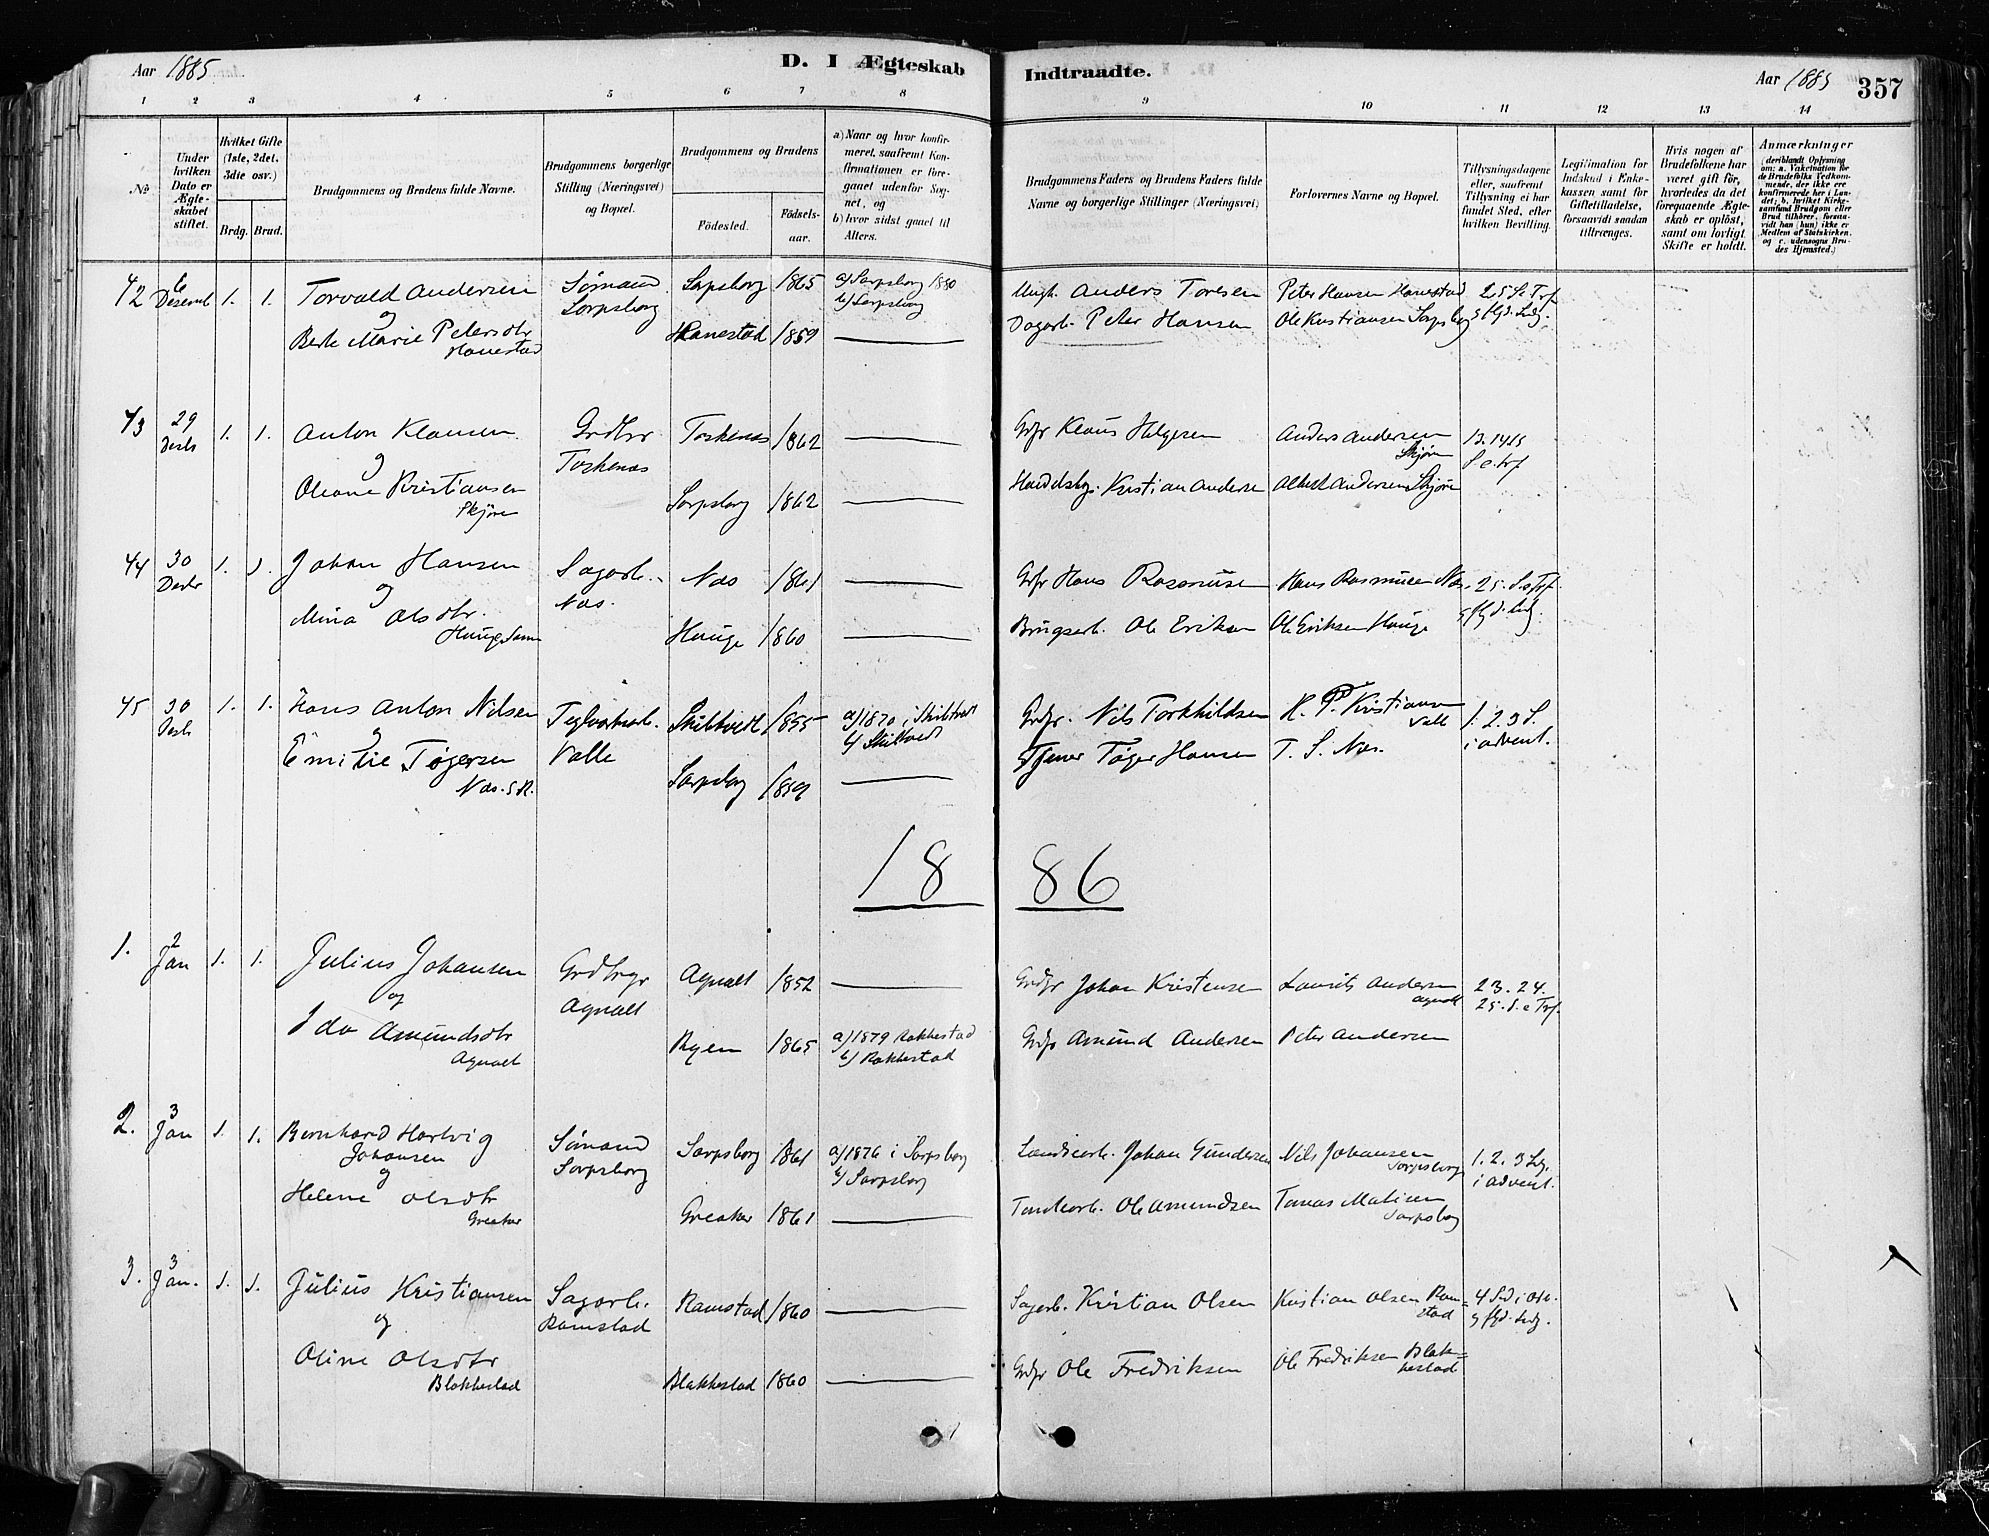 Aar 1885
D. I Ægteskab
Indtraadte.
Aar 1885
357
1 2 3 4 5 6 7 8 9 10 11 12 13 14
№
Under hvilken Dato er Ægteskabet stiftet.
Hvilket Gifte (1ste, 2det, 3die osv.)
Brdg. Brud.
Brudgommens og Brudens fulde Navne.
Brudgommens borgerlige Stilling (Næringsvei) og Bopæl.
Brudgommens og Brudens
Fødested.
Fødselsaar.
a) Naar og hvor konfirmeret, saafremt Konfirmationen er foregaaet udenfor Sognet, og
b) hvor sidst gaaet til Alters.
Brudgommens Faders og Brudens Faders fulde Navne og borgerlige Stillinger (Næringsvei)
Forlovernes Navne og Bopæl.
Tillysningsdagene eller, saafremt Tillysning ei har fundet Sted, efter hvilken Bevilling.
Legitimation for Indskud i Enkekassen samt for Giftetilladelse, forsaavidt saadan tiltrænges.
Hvis nogen af Brudefolkene har været gift før, hvorledes da det foregaaende Ægteskab er opløst, samt om lovligt Skifte er holdt.
Anmærkninger (deriblandt Oplysning om: a. Vakcination for de Brudefolks Vedkommende, der ikke ere konfirmerede her i Landet; b. hvilket Kirkesamfund Brudgom eller Brud tilhører, forsaavidt han (hun) ikke er Medlem af Statskirken, og c. udensogns Brudes Hjemsted.)
42 6 Desemb 1. 1. Torvald Andersen Sømand Sarpsborg 1865 a) Sarpsborg 1880 Anders Toresen Peter Hansen Hanestad 25 S. e Trf
og Sarpsborg b) Sarpsborg
Berte Marie Petersdtr Hanestad 1859 Dagarb. Peter Hansen Ole Kristiansen Sarpsborg
Hanestad
43 29 Desb 1. 1. Anton Klausen Grdbr Torkenæs 1862 Grdbr Klaus Helgesen Anders Andersen 13. 14 15
og Torkenæs Skjøren S. e. trf
Oleane Kristiansen Sarpsborg 1862 Kristian Andersen Albert Andersen Skjøren
Skjøren
44 30 Desbr 1. 1. Johan Hansen Sagarb. Næs 1861 Hans Rasmusen Hans Rasmusen Næs. 25. S. e Trf
og Næs.
Mina Olsdtr. Hauge 1860 Brugsarb. Ole Eriksen Ole Eriksen Hauge
45 30 Desb 1. 1. Hans Anton Nilsen Teglværksarb. Skiltvedt 1855 a) 1870 i Skiltvedt Nils Torkhildsen H. P. Kristiansen 1. 2. 3 S.
og Valle b) Skiltvedt i advent.
Emilie Tøgersen Sarpsborg 1859 Tjener Tøger Hansen T. S. Næs.
1886
1. 2 Jan 1. 1. Julius Johansen Grdbrgr Agnalt 1852 Johan Kristensen Laurits Andersen 23. 24.
og Agnalt Agnalt 25. S. e Trf.
Ida Amundsdtr Ryen 1865 a) 1879 Rakkestad Amund Andersen Peter Andersen
Agnalt b) Rakkestad
2. 3 Jan 1. 1. Bernhard Hartvig Sømand Sarpsborg 1861 a) 1876 i Sarpsborg Johan Gundersen Nils Johansen 1. 2. 3
Johansen Sarpsborg b) Sarpsborg Sarpsborg i advent.
og
Helene Olsdtr Greaker 1861 Ole Amundsen Tomas Matisen
Greaker Sarpsborg
3. 3 Jan. 1. 1. Julius Kristiansen Sagarb. Ramstad 1860 Sagarb. Kristian Olsen Kristian Olsen Ramstad
og Ramstad
Oline Olsdtr Blakkestad 1860 Ole Fredriksen Ole Fredriksen Blakkestad
Blakkestad